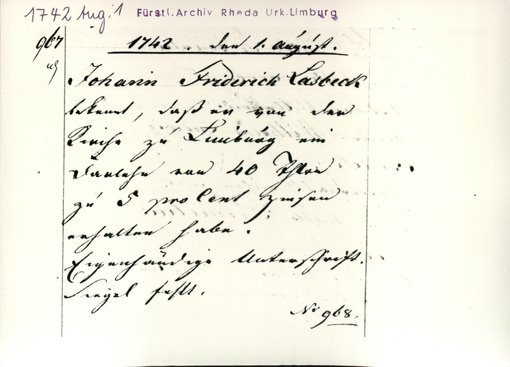 1742 Aug. 1
Fürstl. Archiv Rheda Urk. Limburg
967
1742. den 1. August.
Johann Friderich Lasbeck
bekennt, daß er von der
Kirche zu Limburg ein
Darlehn von 40 Thlr
zu 5 pro Cent Zinsen
erhalten habe.
Eigenhändige Unterschrift.
Siegel fehlt.
No 968.